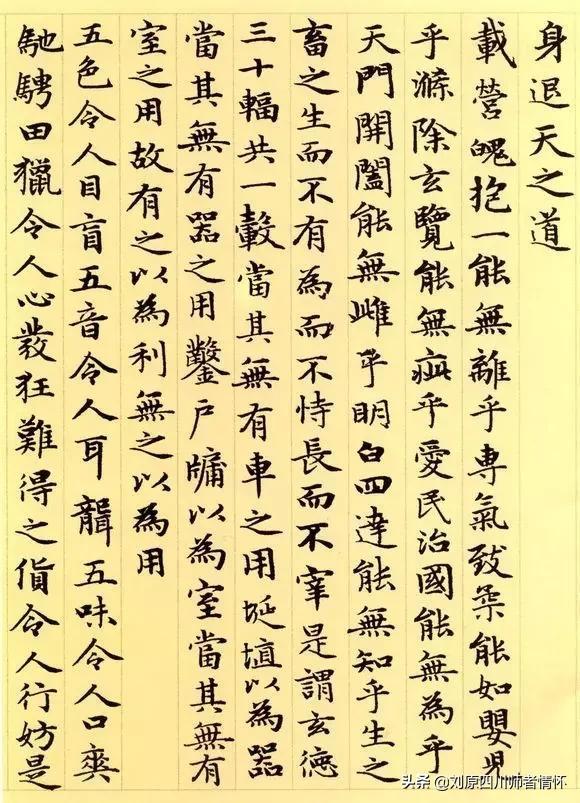 身退天之道
載營魄抱一能無離乎專氣致柔能如嬰兒
乎滌除玄覽能無疵乎愛民治國能無為乎
天門開闔能無雌乎明白四達能無知乎生之
畜之生而不有為而不恃長而不宰是謂玄德
三十輻共一轂當其無有車之用埏埴以為器
當其無有器之用鑿戶牖以為室當其無有
室之用故有之以為利無之以為用
五色令人目盲五音令人耳聾五味令人口爽
馳騁田獵令人心發狂難得之貨令人行妨是
头条 @刘原四川师者情怀